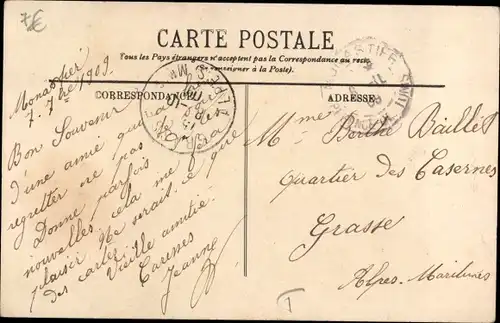 7€
CARTE POSTALE
Tous les Pays étrangers n'acceptent pas la Correspondance au recto
(Se renseigner à la Poste).
CORRESPONDANCE
ADRESSE
Monastier
7-7bre 1909
Bon Souvenir
d'une amie qui
regretter ne pas
Donne parfois
nouvelles, cela me fera
plaisir ne serait-ce que
des cartes
Vieille amitié
Caresses
Jeanne
Mme Berthe Baillet
Quartier des Casernes
Grasse
Alpes-Maritimes